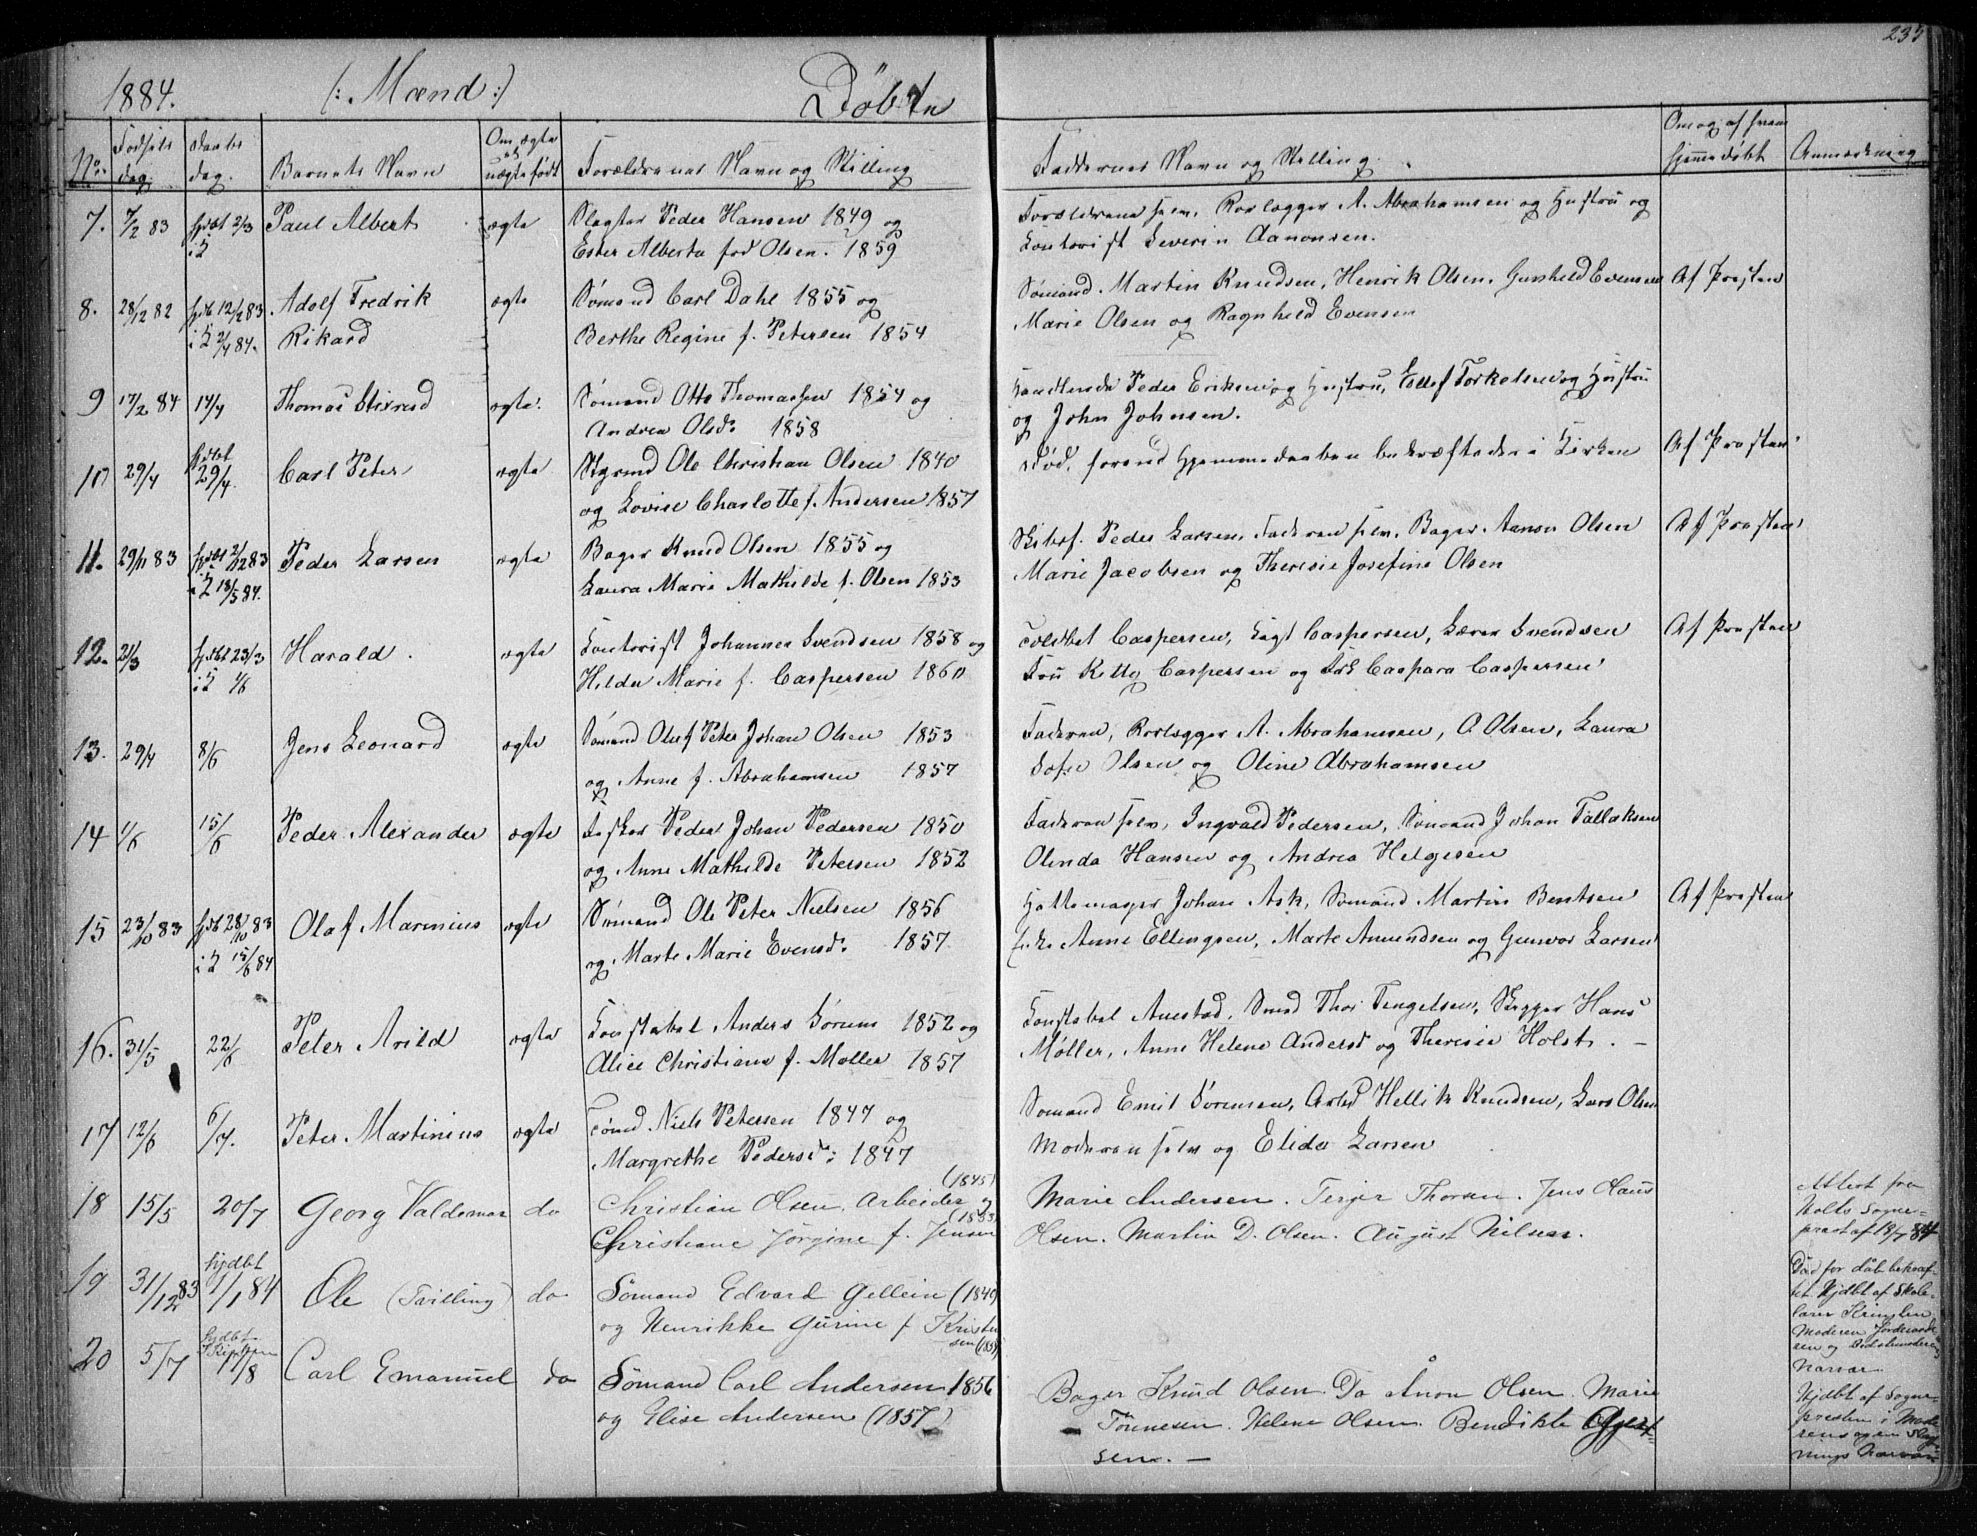 1884. (: Mænd :) Döbte 235
No. Fødsels dag. Daabs dag. Barnets Navn Om ægte el. uægte født Forældrenes Navn og Stilling Faddernes Navn og Stilling. Om og af hvem hjemmedøbt Anmærkning
7. 7/2 83 hjdbt 2/3 Paul Albert ægte Slagter Peder Hansen 1849 og Forældrene selv, Rorlægger A. Abrahamsen og Hustru og
Ester Alberta fød Olsen. 1859 Kontorist Severin Aanonsen.
8. 28/12 82 hjdb 12/2 83 Adolf Fredrik ægte Sømand Carl Dahl 1855 og Sømand. Martin Knudsen, Henrik Olsen, Gunhild Evensen Af Præsten
84. Rikard Berthe Regine f. Petersen 1854 Marie Olsen og Ragnhild Evensen
9 17/2 84 14/4 Thomas ægte. Sømand Otto Thomassen 1854 og Peder Eriksen og Hustru, Ellef Torkelsen og Hustru
Andrea Olsd. 1858 og John Johnsen.
10 29/4 hjdbt 29/4. Carl Peter ægte Styrmd Ole Christian Olsen 1840 Død, forend Hjemmedaaben bekræftedes i Kirken Af Præsten
og Lovise Charlotte f. Andersen 1857
11. 29/11 83 hjdbt 2/12 83 Peder Larsen ægte Bager Knud Olsen 1855 og Skibsf. Peder Larsen, Faderen selv, Bager Aanon Olsen Af Præsten
i K 18/5 84. Laura Marie Mathilde f. Olsen 1853 Marie Jacobsen og Theresie Josefine Olsen
12. 21/3 hjdbt 23/3 Harald. ægte Kontorist Johannes Svendsen 1858 og Toldbet Caspersen, Caspersen, Lærer Svendsen Af Præsten
i K 1/6 Hilda Marie f. Caspersen 1860 Fru Kitty Caspersen og Frk Caspara Caspersen
13. 29/4 8/6 Jens Leonard ægte Sømand Oluf Peter Johan Olsen 1853 Faderen, Rorlægger A. Abrahamsen, O Olsen, Laura
og Anne f. Abrahamsen 1857 Sofie Olsen og Oline Abrahamsen
14 1/6 15/6 Peder Alexander ægte Fisker Peder Johan Pedersen 1850 Faderen selv, Ingvald Pedersen, Sømand Johan Tallaksen
og Anne Mathilde Petersen 1852 Olinda Hansen og Andrea Helgesen
15 23/10 83 hjdbt 28/10 83 Olaf Marinius ægte Sømand Ole Peter Nielsen 1856 Hattemager Johan Ask, Sømand Martin Bentsen Af Præsten
i K 15/6 84 og Marte Marie Evensd. 1857 Anne Ellingsen, Marte Amundsen og Gunvor Larsen
16. 31/5 22/6 Peter Arild ægte Konstabel Anders Sørum 1852 og Konstabel Auestad, Smed Thor Tengelsen, Skipper Hans
Alice Christiane f. Møller 1857 Møller, Anne Helene Andersd og Theresie Holst. —
17 12/6 6/7. Peter Martinius ægte Tømd Niels Petersen 1847 og Sømand Emil Sørensen, Arbd Hellik Knudsen, Lars Olsen
Margrethe Pedersd: 1847 Moderen selv og Elida Larsen
18 15/5 20/7 Georg Valdemar do Christian Olsen, Arbeider (1845) og Marie Andersen. Terjer Thorsen. Jens Olaus Attest fra
Christiane Jørgine f. Jensen Olsen. Martin D. Olsen. August Nilsen. Holts Sogne-
prest af 18/7 84
19 31/12 83 hjdbt 1/1 84 Ole (Tvilling) do Sømand Edvard Gellein (1840) Død før dåb bekræf-
og Henrikke Gurine f Kristensen tet Hjdbt af Skole-
lærer
Moderen Jordemode-
ren og
20 5/7 hjdbt /8 Carl Emanuel do Sømand Carl Andersen 1856 Bager Knud Olsen. Do Ånon Olsen. Marie nærvær.
og Elise Andersen (1857) Tönnesen. Helene Olsen. Bendikte Hjdbt af Sogne-
sen. — presten i Mode-
rens og en